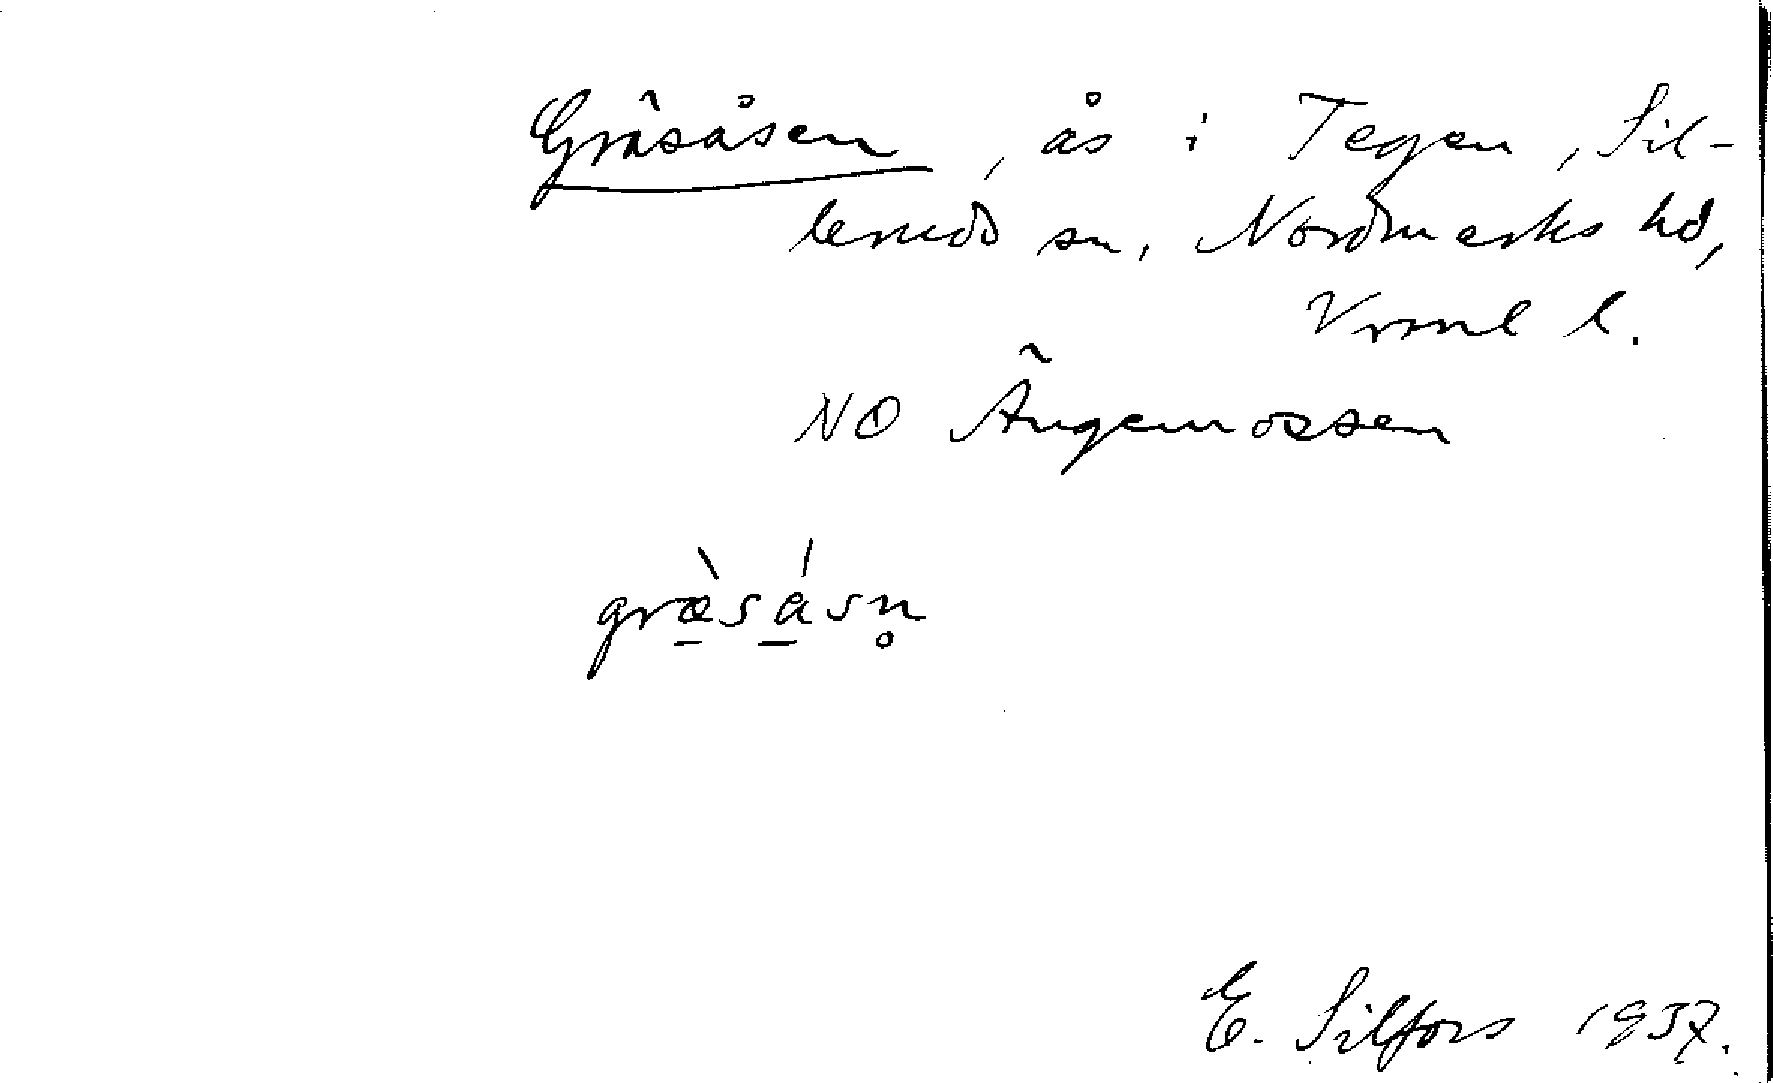 Gräsåsen, ås i Tegen, Sil-
leruds sn, Nordmarks hd,
Vrml l.
NO Ängemossen
græ̀sásn̥
E. Silfors 1937.